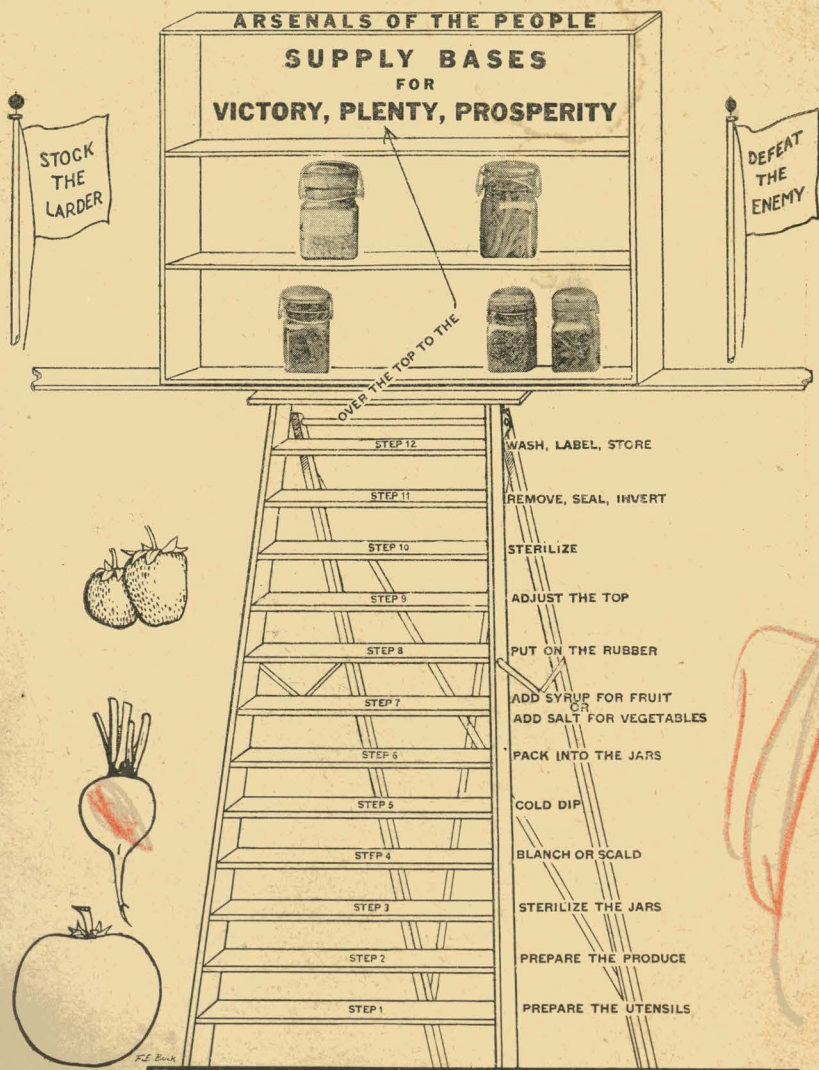 ARSENALS OF THE PEOPLE
SUPPLY BASES
FOR
VICTORY, PLENTY, PROSPERITY
STOCK
THE
LARDER
DEFEAT
THE
ENEMY
OVER THE TOP TO THE
STEP 12 WASH, LABEL, STORE
STEP 11 REMOVE, SEAL, INVERT
STEP 10 STERILIZE
STEP 9 ADJUST THE TOP
STEP 8 PUT ON THE RUBBER
STEP 7 ADD SYRUP FOR FRUIT
OR
ADD SALT FOR VEGETABLES
STEP 6 PACK INTO THE JARS
STEP 5 COLD DIP
STEP 4 BLANCH OR SCALD
STEP 3 STERILIZE THE JARS
STEP 2 PREPARE THE PRODUCE
STEP 1 PREPARE THE UTENSILS
F.E. Buck